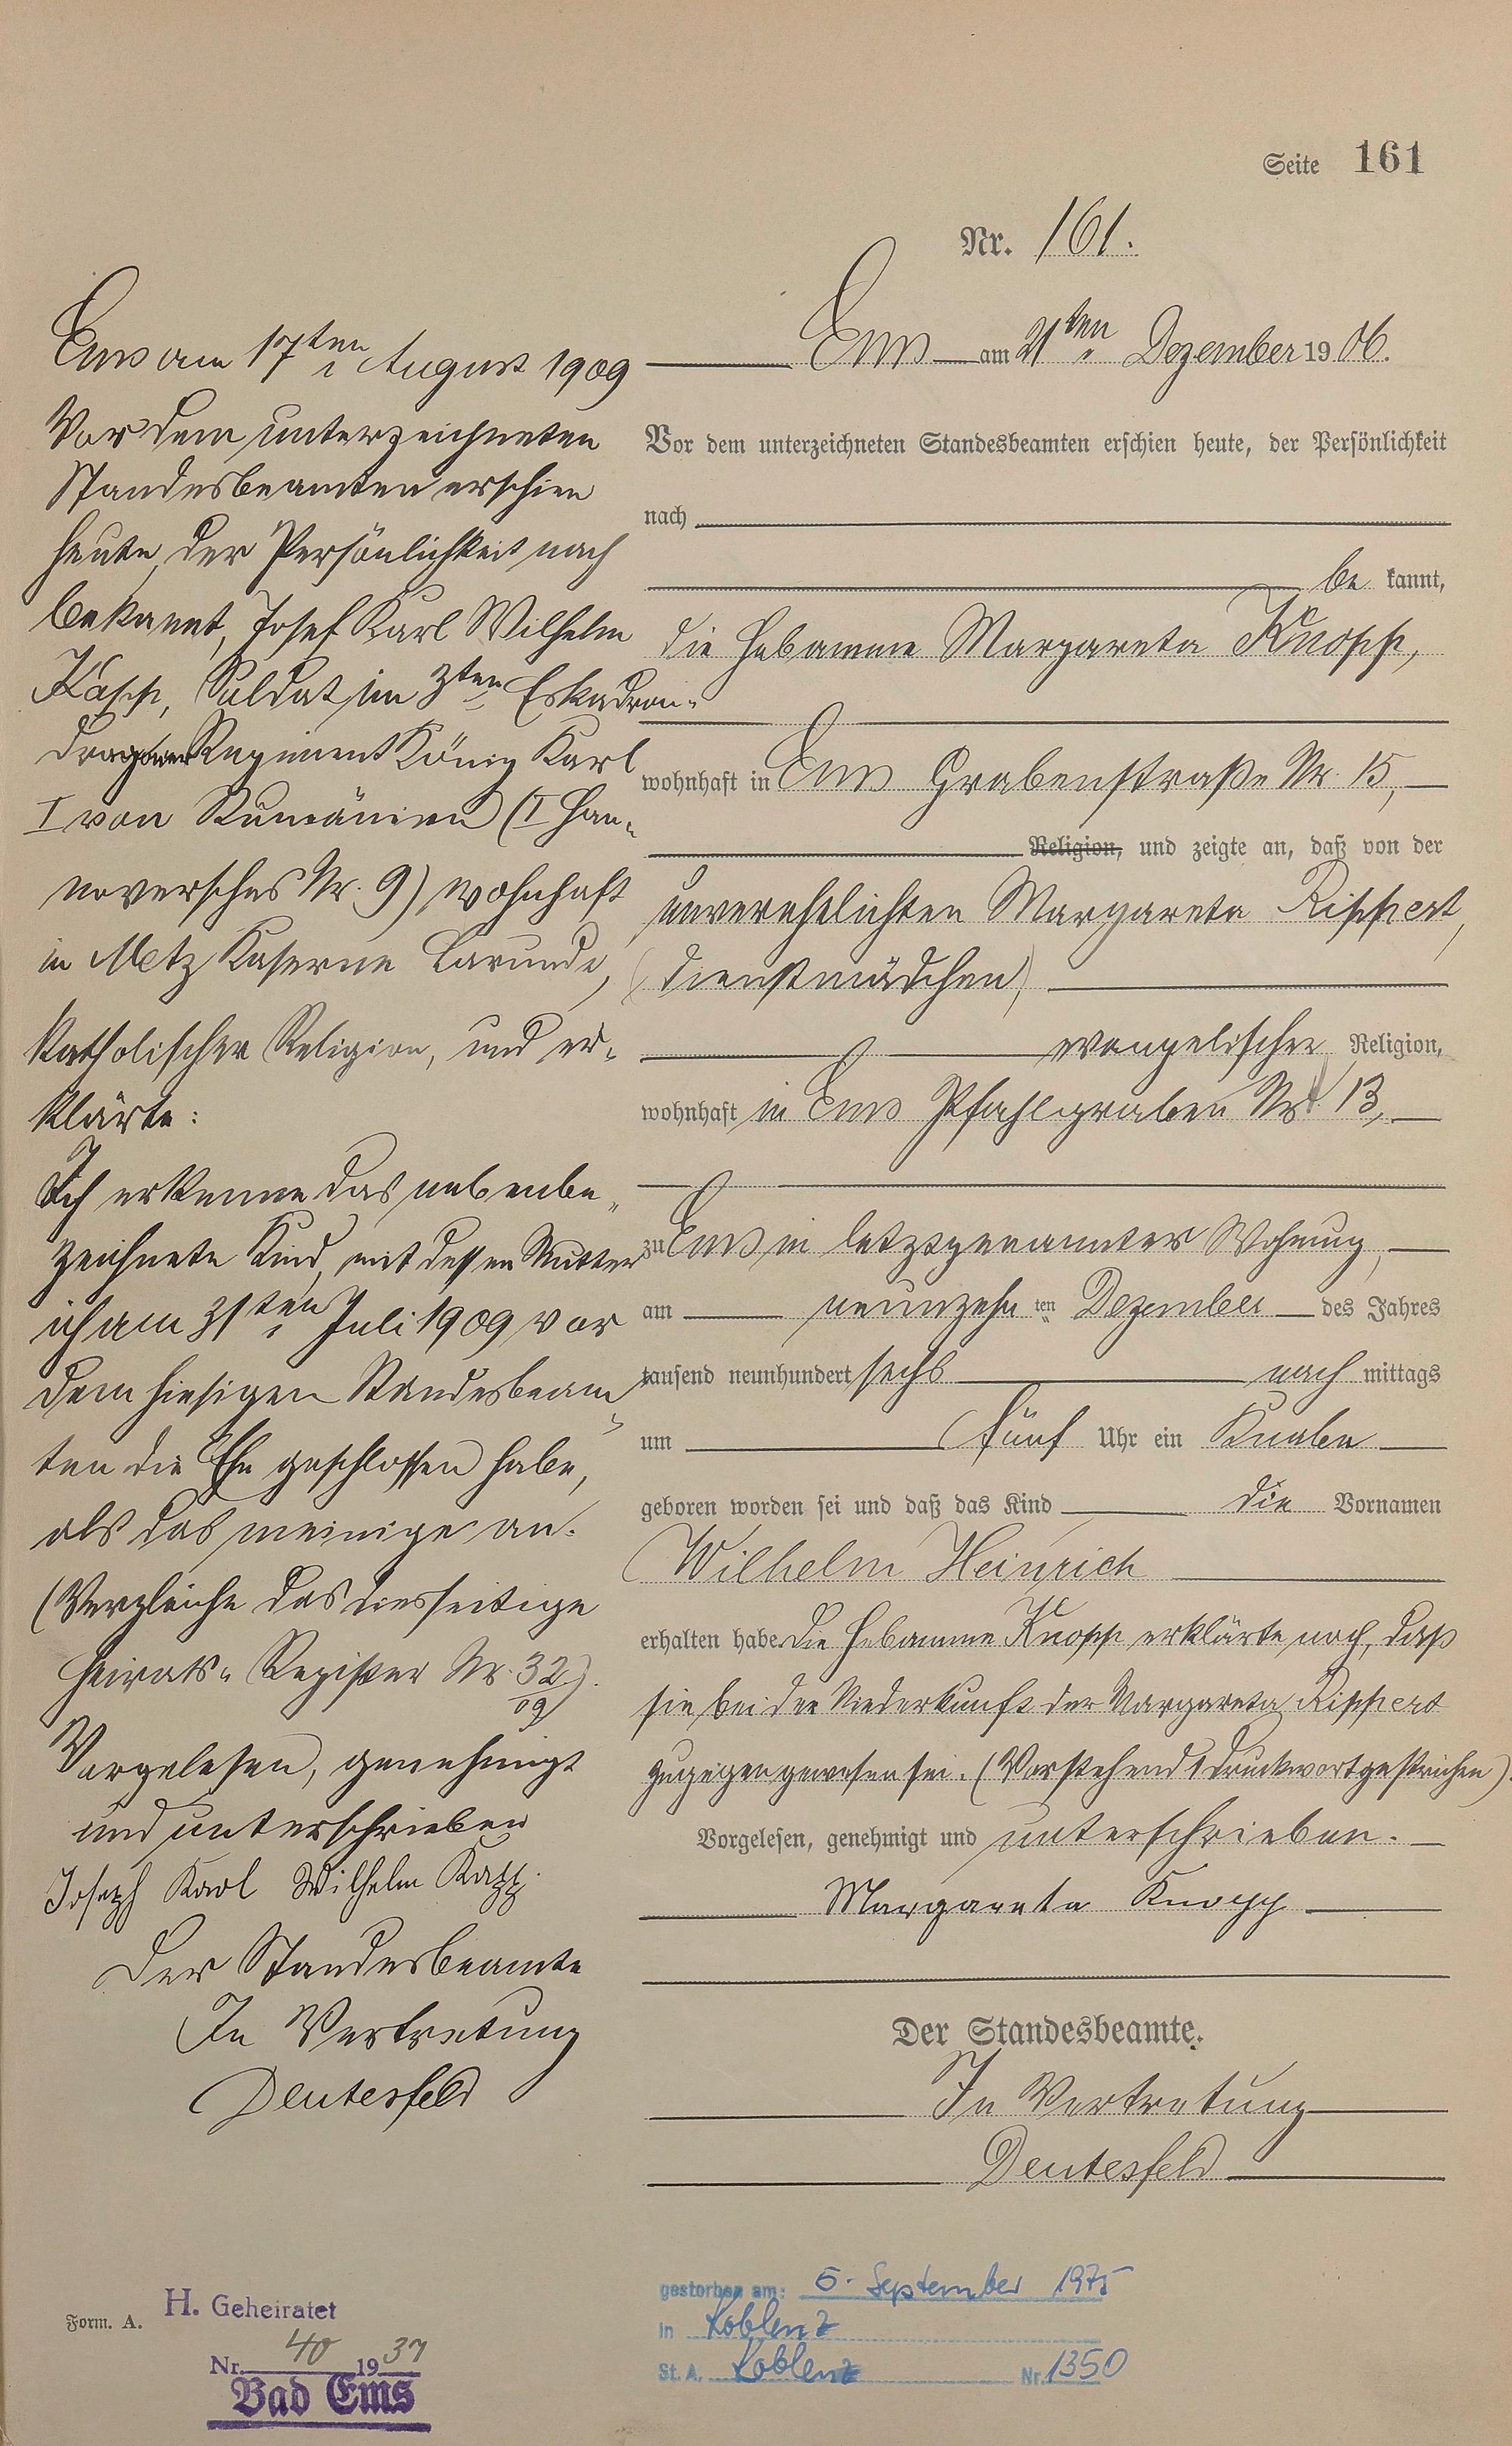 Seite 161
Nr. 161.
Ems am 21ten Dezember 1906.
Vor dem unterzeichneten Standesbeamten erschien heute, der Persönlichkeit
nach
be kannt,
die Hebamme Margareta Knopp,
wohnhaft in Ems Grabenstraße Nr. 15,
Religion, und zeigte an, daß von der
unverehelichten Margareta Rippert,
(Dienstmädchen)
evangelischer Religion,
wohnhaft in Ems Pfahlgraben Nr. 13,
zu Ems in letztgenannter Wohnung,
am neunzehnten Dezember des Jahres
tausend neunhundert sechs nach mittags
um fünf Uhr ein Knabe
geboren worden sei und daß das Kind die Vornamen
Wilhelm Heinrich
erhalten habe. Die Hebamme Knopp erklärte noch, daß
sie bei der Niederkunft der Margareta Rippert
zugegen gewesen sei. (Vorstehend 1 Druckwort gestrichen).
Vorgelesen, genehmigt und unterschrieben.
Margareta Knopp
Der Standesbeamte.
In Vertretung
Deutesfeld
Ems am 17ten August 1909
Vor dem unterzeichneten
Standesbeamten erschien
heute, der Persönlichkeit nach
bekannt, Josef Karl Wilhelm
Kapp, Soldat im 3ten Eskadron-
Dragoner Regiment König Karl
I von Rumänien (I Han-
noversches Nr. 9) wohnhaft
in Metz Kaserne
katholischer Religion, und er-
klärte:
Ich erkenne das nebenbe-
zeichnete Kind, mit dessen Mutter
ich am 31ten Juli 1909 vor
dem hiesigen Standesbeam-
ten die Ehe geschlossen habe,
als das meinige an.
(Vergleiche das diesseitige
Heirats-Register Nr. 32/09).
Vorgelesen, genehmigt
und unterschrieben
Joseph Karl Wilhelm Kapp.
Der Standesbeamte
In Vertretung
Deutesfeld
Form. A.
H. Geheiratet
Nr. 40 1937
Bad Ems
gestorben am: 5. September 1975
in Koblenz
St. A. Koblenz Nr. 1350